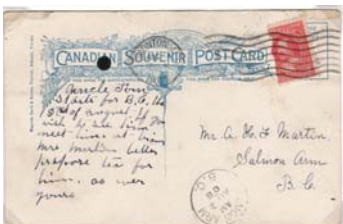 CANADIAN SOUVENIR POST CARD
Uncle Tom
Starts for B.C. the
of august if
wish to see him
meet him at train
Mrs Martin better
prepare tea for
him. as ever
yours
Mr A. H. F. Martin,
Salmon Arm
B.C.